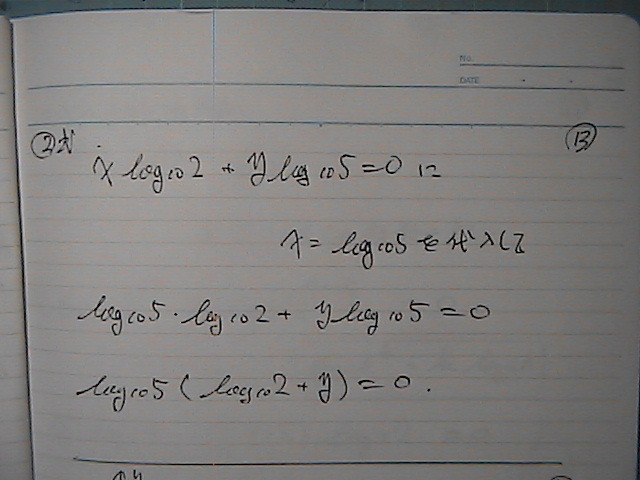 No.
DATE
②式 ⑬
x log₁₀2 + y log₁₀5 = 0 に
x = log₁₀5 を代入して
log₁₀5・log₁₀2 + y log₁₀5 = 0
log₁₀5 ( log₁₀2 + y ) = 0.